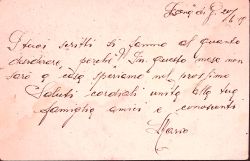 Zona di G. 20/6/17
I tuoi scritti si fanno al quanto
desiderare, perchè? In questo mese non
sarò a casa speriamo nel prossimo
Saluti cordiali unita alla tua
famiglia amici e conoscenti
Mario